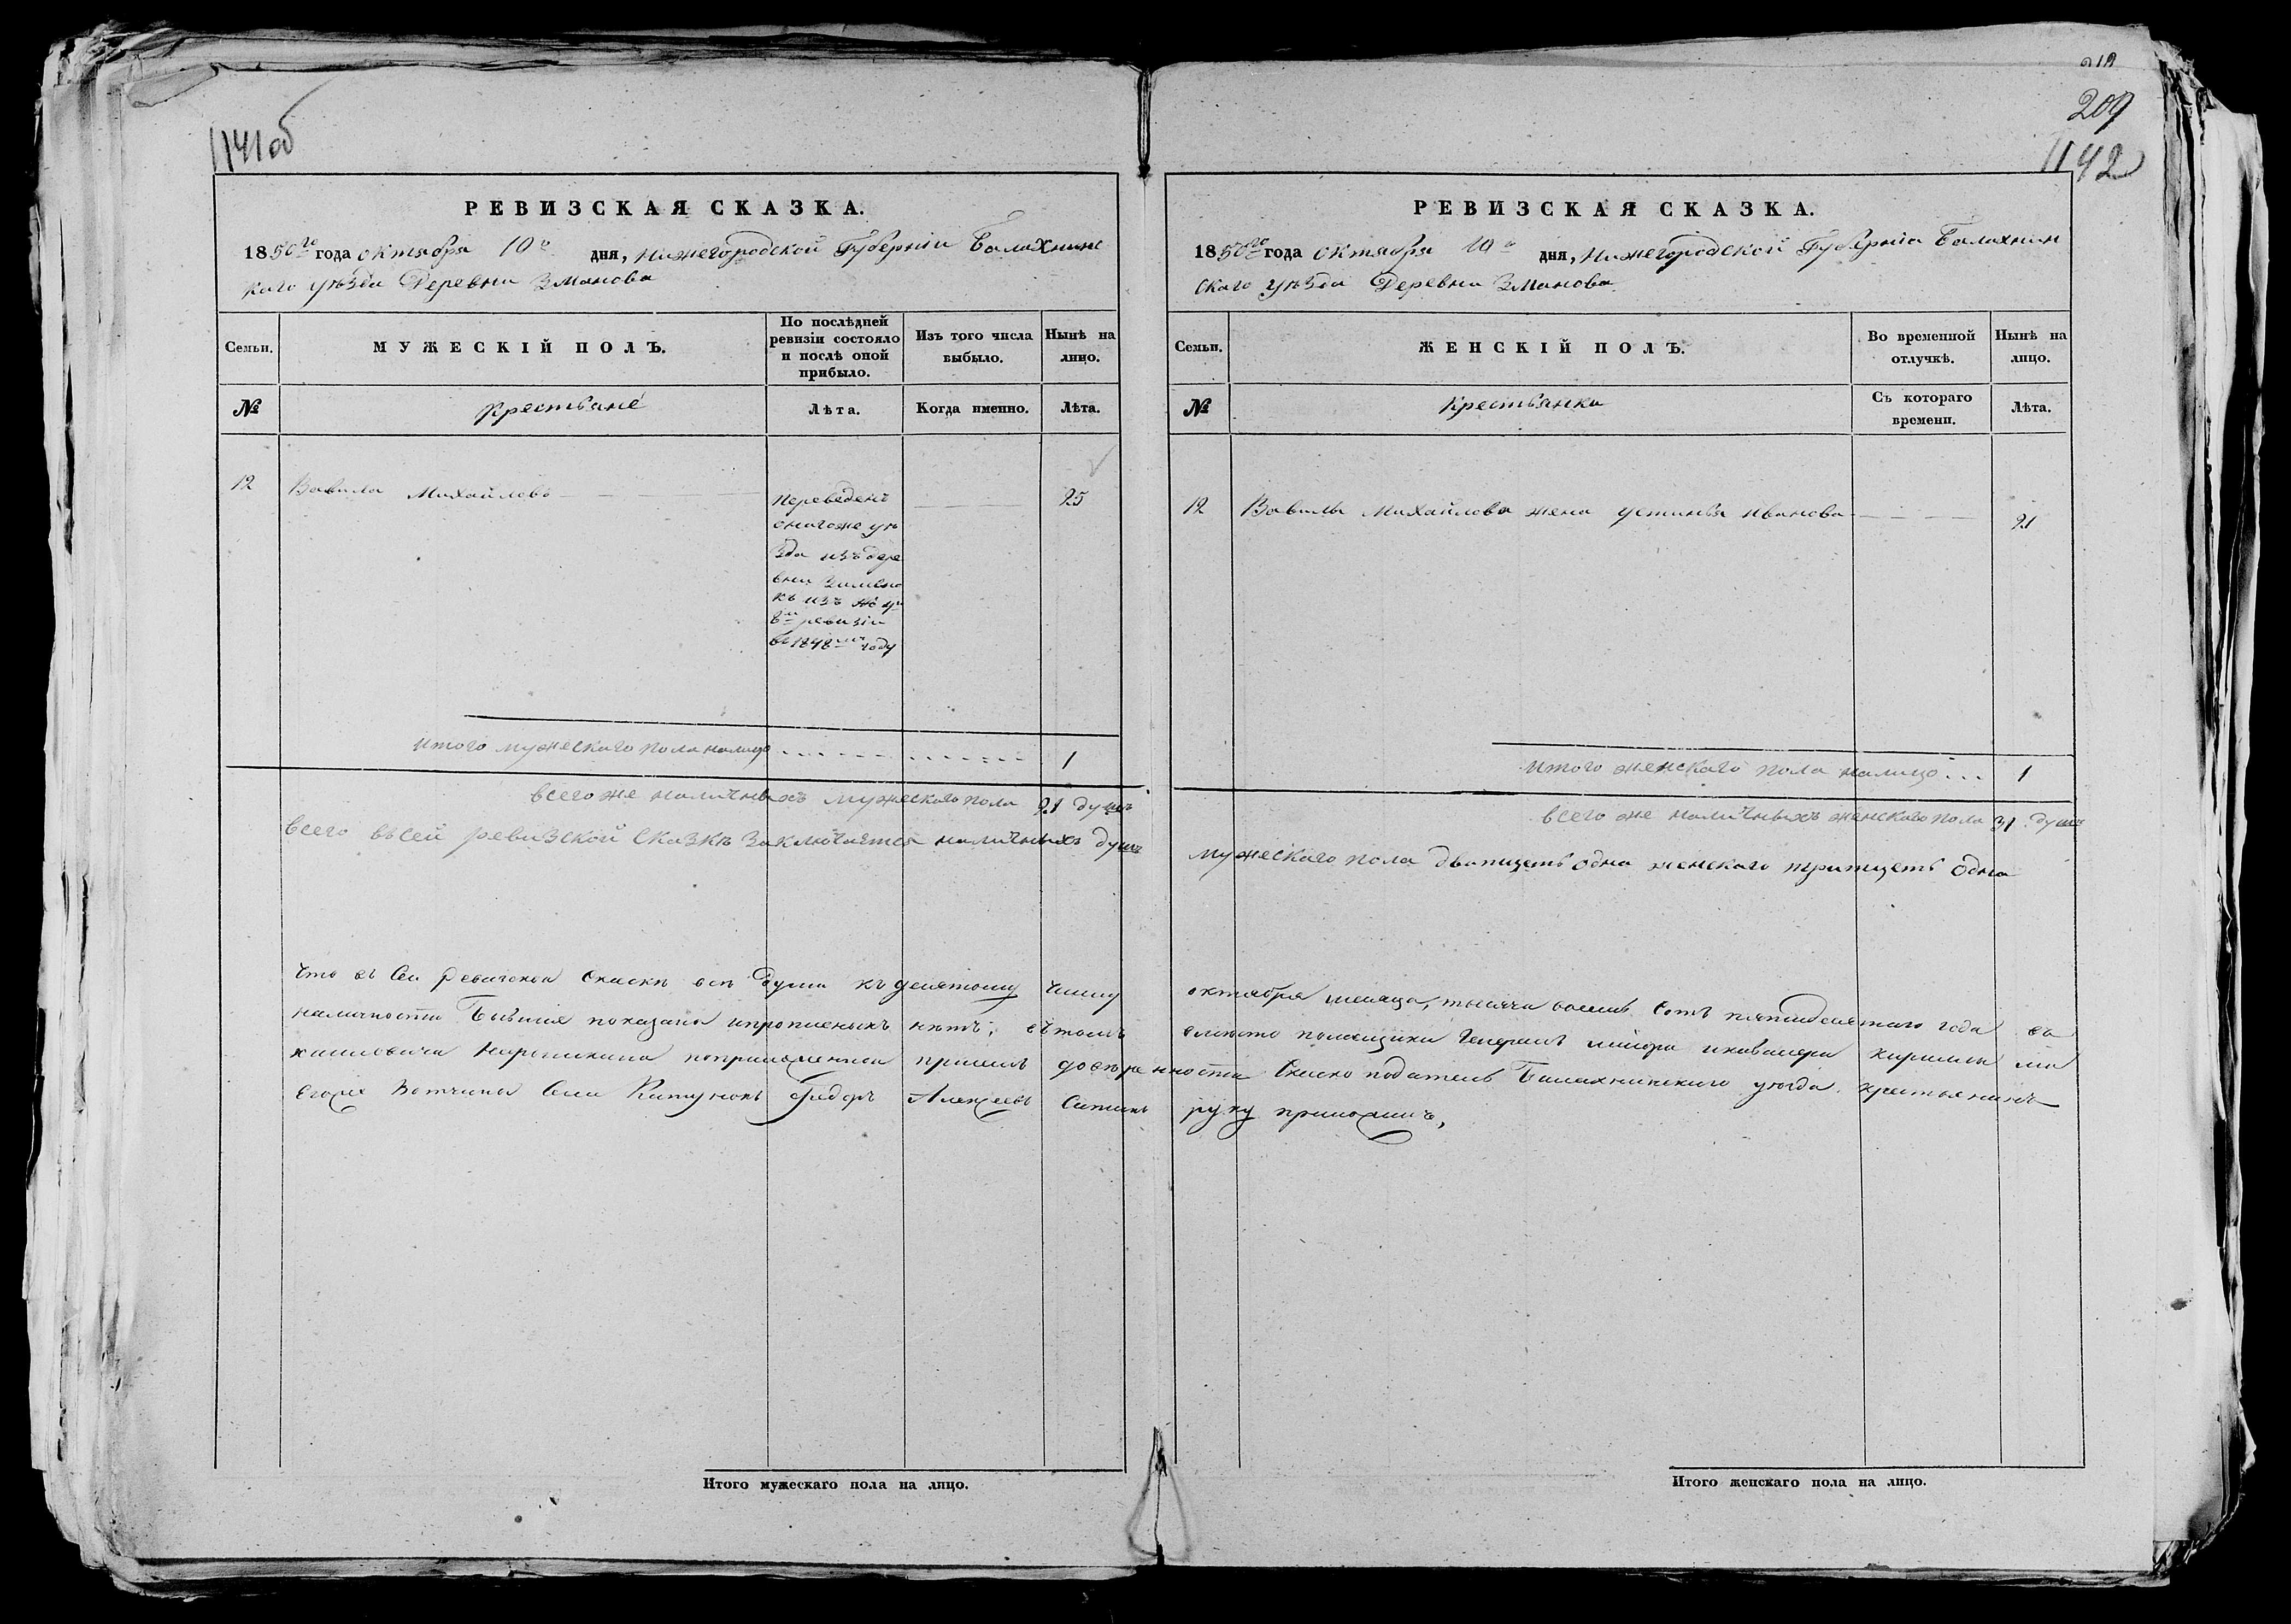 1141об
РЕВИЗСКАЯ СКАЗКА.
1850го года октября 10о дня, Нижегородской Губерніи Балахнинс
каго уѣзда Деревни Зманова
Семьи.
МУЖЕСКІЙ ПОЛЪ.
По послѣдней ревизіи состояло и послѣ оной прибыло.
Изъ того числа выбыло.
Нынѣ на лицо.
№
Крестьяне
Лѣта.
Когда именно.
Лѣта.
12 Вавила Михайловъ 25
переведенъ
онагоже уѣ
зда изъ дере
вни
къ изъ
8й ревизіи
въ 1848м году
итого мужескаго пола налицо 1
всего же наличныхъ мужескаго пола 21 душъ
всего въ сей ревизской сказкѣ заключается наличныхъ душъ
Что въ сей ревизской скаскѣ всѣ души къ десятому числу
наличности бывшие показаны и прописныхъ нѣтъ, въ томъ
Нарышкина приложениемъ
егоже вотчины села Катунокъ Федоръ Алексеевъ
Итого мужескаго пола на лицо.
209
1142
РЕВИЗСКАЯ СКАЗКА.
1850го года октября 10о дня, Нижегородской Губерніи Балахнин
скаго уѣзда Деревни Зманова
Семьи.
ЖЕНСКІЙ ПОЛЪ.
Во временной отлучкѣ.
Нынѣ на лицо.
№
Крестьянки
Съ котораго времени.
Лѣта.
12 Вавилы Михайлова жена устинья иванова 21
итого женскаго пола налицо 1
всего же наличныхъ женскаго пола 31 душъ
мужескаго пола дватцеть одна женскаго тритцеть одна
октября месяца, тысяча восемь сотъ пятидесятаго года въ
помещика Генералъ маиора и кавалера Кирилы ми
податель Балахнинского уезда крестьянинъ
руку приложилъ,
Итого женскаго пола на лицо.